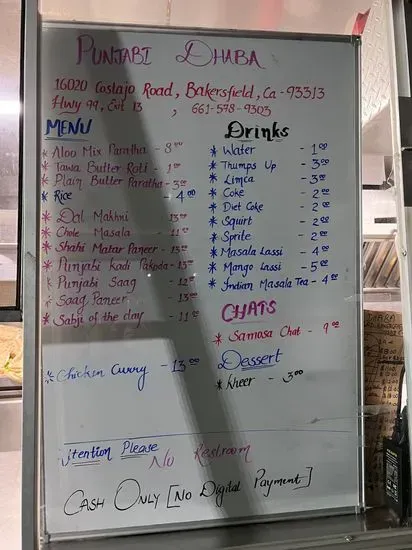 PUNJABI DHABA
16020 Costajo Road, Bakersfield, Ca - 93313
Hwy 99, Exit 13 , 661-578-9303
MENU
* Aloo Mix Paratha - 8.00
* Tawa Butter Roti - 1.00
* Plain Butter Paratha - 3.00
* Rice - 4.00
* Dal Makhni 13.00
* Chole Masala - 11.00
* Shahi Matar Paneer - 13.00
* Punjabi Kadi Pakoda - 13.00
* Punjabi Saag - 12.00
* Saag Paneer - 13.00
* Sabji of the day - 11.00
* Chicken Curry - 13.00
Drinks
* Water - 1.00
* Thumps Up - 3.00
* Limca - 3.00
* Coke - 2.00
* Diet Coke - 2.00
* Squirt - 2.00
* Sprite - 2.00
* Masala Lassi - 4.00
* Mango Lassi - 5.00
* Indian Masala Tea - 4.00
CHATS
* Samosa Chat - 9.00
Dessert
* Kheer - 3.00
ttention Please
No Restroom
CASH ONLY [No Digital Payment]